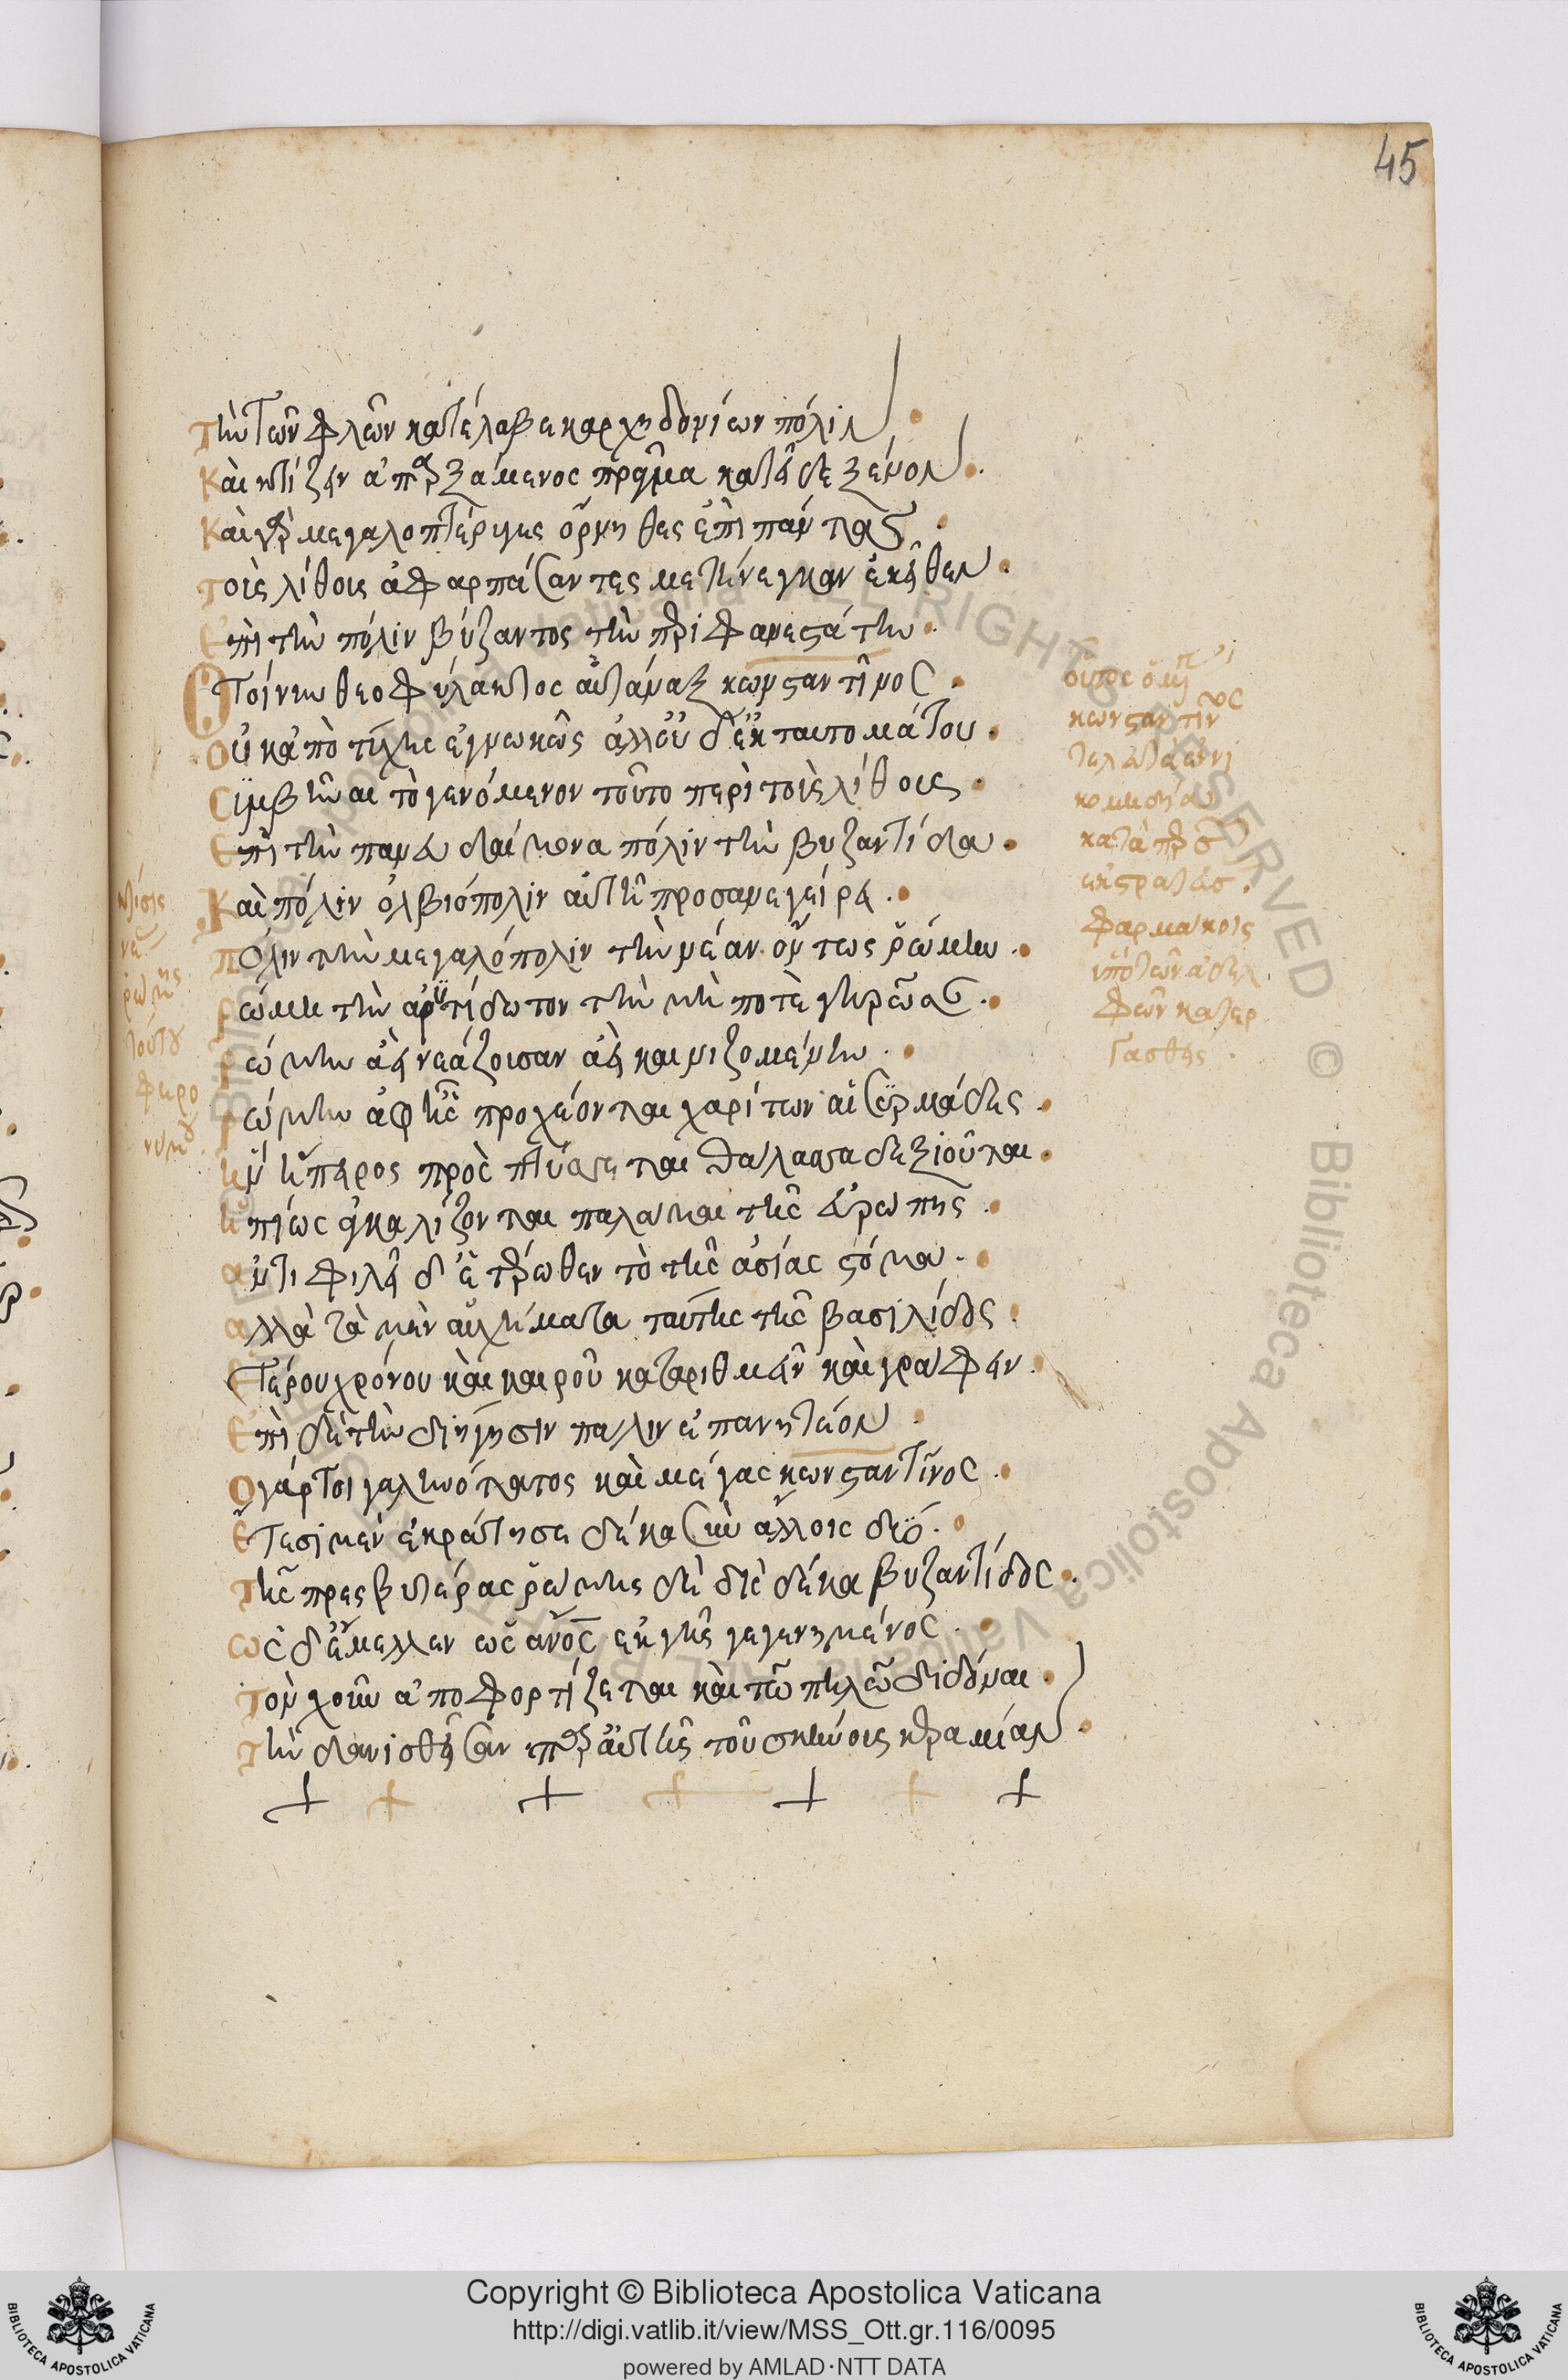 45
Τὴν τῶν φίλων κατέλαβε καρχηδονίων πόλιν
Καὶ κτίζειν ἀπαρξάμενος πρᾶγμα κατεῖδε ξένον
Καὶ γὰρ μεγαλοπτέρυγες ὄρνιθες ἐπιπάντες
Τοὺς λίθους ἀφαρπάσαντες μετήνεγκαν ἐκεῖθεν
Ἐπὶ τὴν πόλιν βύζαντος τὴν περιφανεστάτην
Ὁ τοίνυν θεοφύλακτος αὐτάναξ κωνσταντῖνος
Οὐκ ἀπὸ τύχης ἐγνωκὼς ἀλλ' οὐδ' ἐκ ταυτομάτου
Συμβῆναι τὸ γενόμενον τοῦτο περὶ τοὺς λίθους
Ἐπὶ τὴν πανευδαίμονα πόλιν τὴν βυζαντίδα
Καὶ πόλιν ὀλβιόπολιν αὐτῇ προσανεγείρει
Πόλιν τὴν μεγαλόπολιν τὴν νέαν ὄντως ῥώμην
Ῥώμην τὴν ἀρυτίδωτον τὴν μήποτε γηρῶσαν
Ῥώμην ἀεὶ νεάζουσαν ἀεὶ καινιζομένην
Ῥώμην ἀφ' ἧς προχέονται χαρίτων αἱ συρμάδες
Ἣν ἤπειρος προσπτύσσεται θάλασσα δεξιοῦται
Ἠπίως ἀγκαλίζονται παλάμαι τῆς εὐρώπης
ἀντιφιλεῖ δ' ἑτέρωθεν τὸ τῆς ἀσίας στόμα
ἀλλὰ τὰ μὲν αὐχήματα ταύτης τῆς βασιλίδος
Ἑτέρου χρόνου καὶ καιροῦ καταριθμεῖν καὶ γράφειν
Ἐπὶ δὲ τὴν διήγησιν πάλιν ἐπανητέον
Ὁ γάρ τοι γαληνότατος καὶ μέγας κωνσταντῖνος
Ἔτεσι μὲν ἐκράτησε δέκα σὺν ἄλλοις δύο
Τῆς πρεσβυτέρας ῥώμης δὲ δὶς δέκα βυζαντίδος
ὡς δ' ἔμελλεν ὡς ἄνος ἐκ γῆς γεγενημένος
Τὸν χοῦν ἀποφορτίζεται καὶ τῷ πηλῷ διδόναι
Τὴν δανισθεῖσαν παρ' αὐτῆς τοῦ σκεύους κεραμίαν
οὗτος ὁ μέγας
κωνσταντῖνος
τελευτᾷ ἐν νι
κομηδείᾳ
κατὰ περσῶν
ἐκστρατεύσας.
φαρμάκοις
ὑπὸ τῶν ἀδελ
φῶν κατερ
γασθείς.
κτίσις
νέας
ῥώμης
τούτου
Copyright © Biblioteca Apostolica Vaticana
http://digi.vatlib.it/view/MSS_Ott.gr.116/0095
powered by AMLAD·NTT DATA
BIBLIOTECA APOSTOLICA VATICANA
BIBLIOTECA APOSTOLICA VATICANA